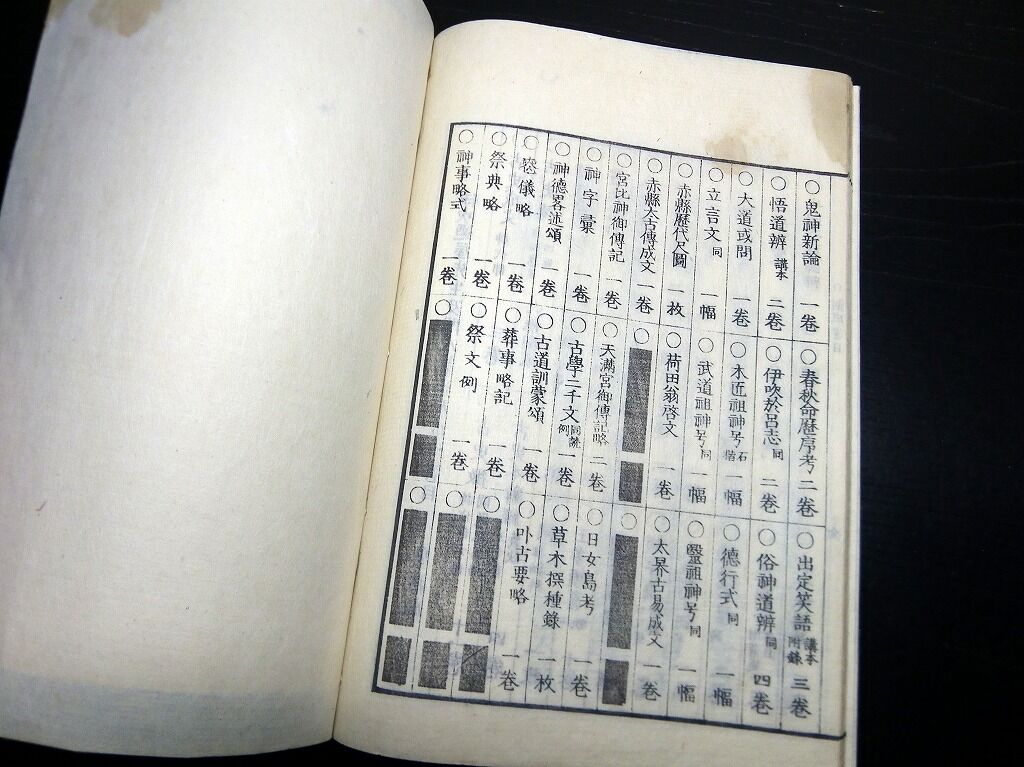 ○鬼神新論 一卷 ○春秋命歴序考 二卷 ○出定笑語 講本附錄 三卷
○悟道辨 講本 二卷 ○伊吹於呂志 同 二卷 ○俗神道辨 同 四卷
○大道或問 一卷 ○木匠祖神号 石摺 一幅 ○德行式 同 一幅
○立言文 同 一幅 ○武道祖神号 同 一幅 ○醫祖神号 同 一幅
○赤縣歷代尺圖 一枚 ○荷田翁啓文 一卷 ○太昦古易成文 一卷
○赤縣太古傳成文 一卷 ○ ○
○宮比神御傳記 一卷 ○天満宮御傳記略 二卷 ○日女島考 一卷
○神字彙 一卷 ○古學二千文 同 例 一卷 ○草木撰種錄 一枚
○神德畧述頌 一卷 ○古道訓蒙頌 一卷 ○卟古要略 一卷
○儀略 一卷 ○葬事略記 一卷 ○
○祭典略 一卷 ○祭文例 一卷 ○
○神事略式 一卷 ○ ○